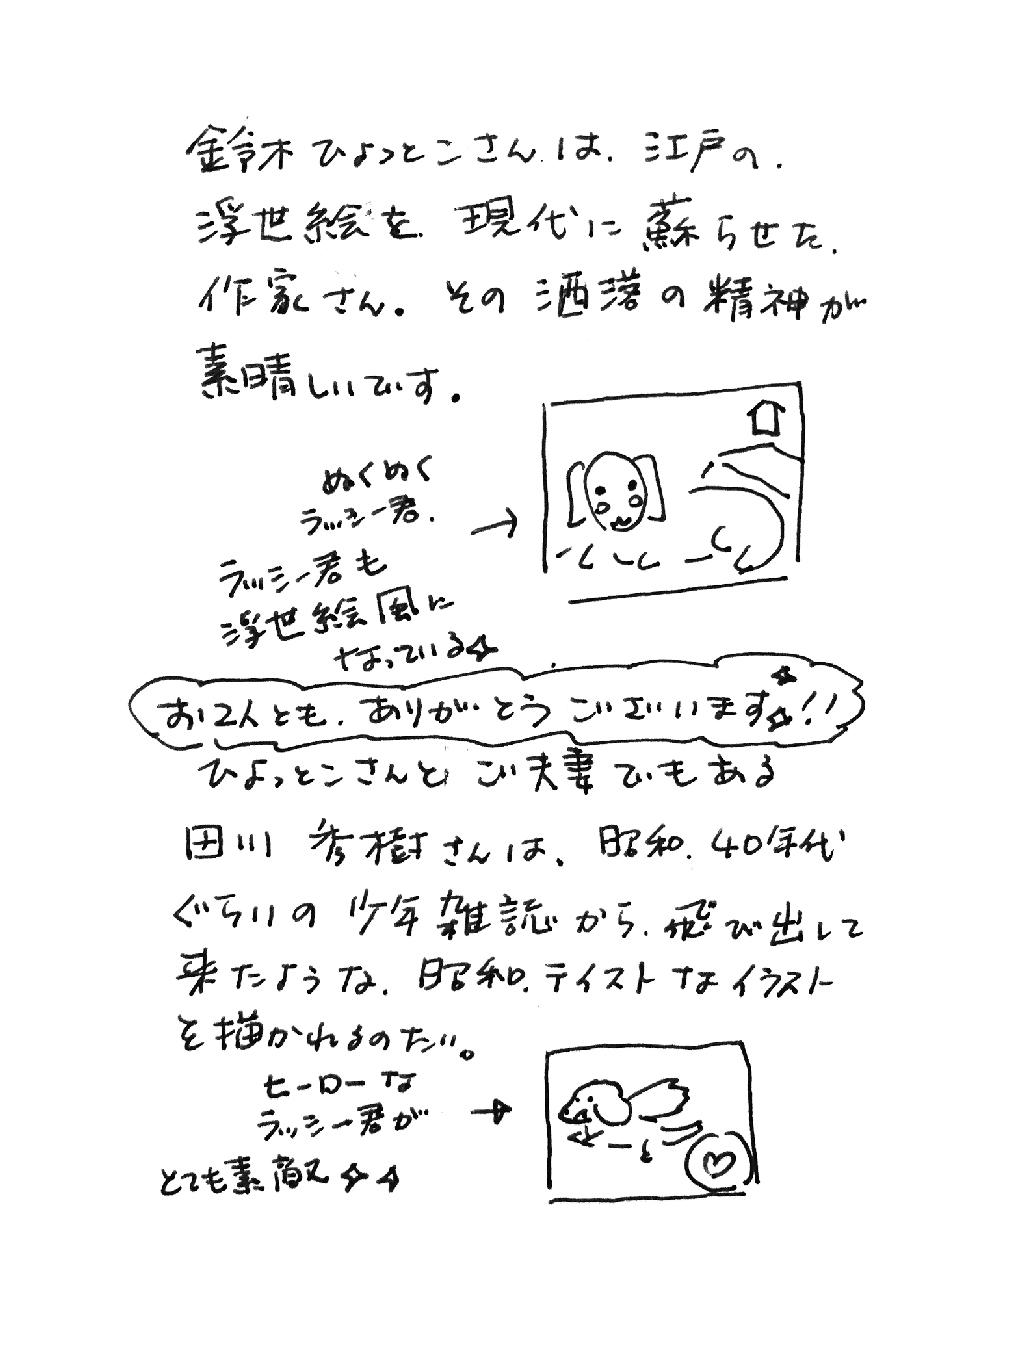 鈴木ひょっとこさんは、江戸の、
浮世絵を、現代に蘇らせた、
作家さん。その洒落の精神が
素晴しいです。
ぬくぬく
ラッシー君、
→
ラッシー君も
浮世絵風に
なっている☆
お2人とも、ありがとうございます☆☆!!
ひょっとこさんと、ご夫妻でもある
田川 秀樹さんは、昭和、40年代
ぐらいの少年雑誌から、飛び出して
来たような、昭和、テイストなイラスト
を描かれるのだ。
ヒーローな
ラッシー君が
→
とても素敵☆☆